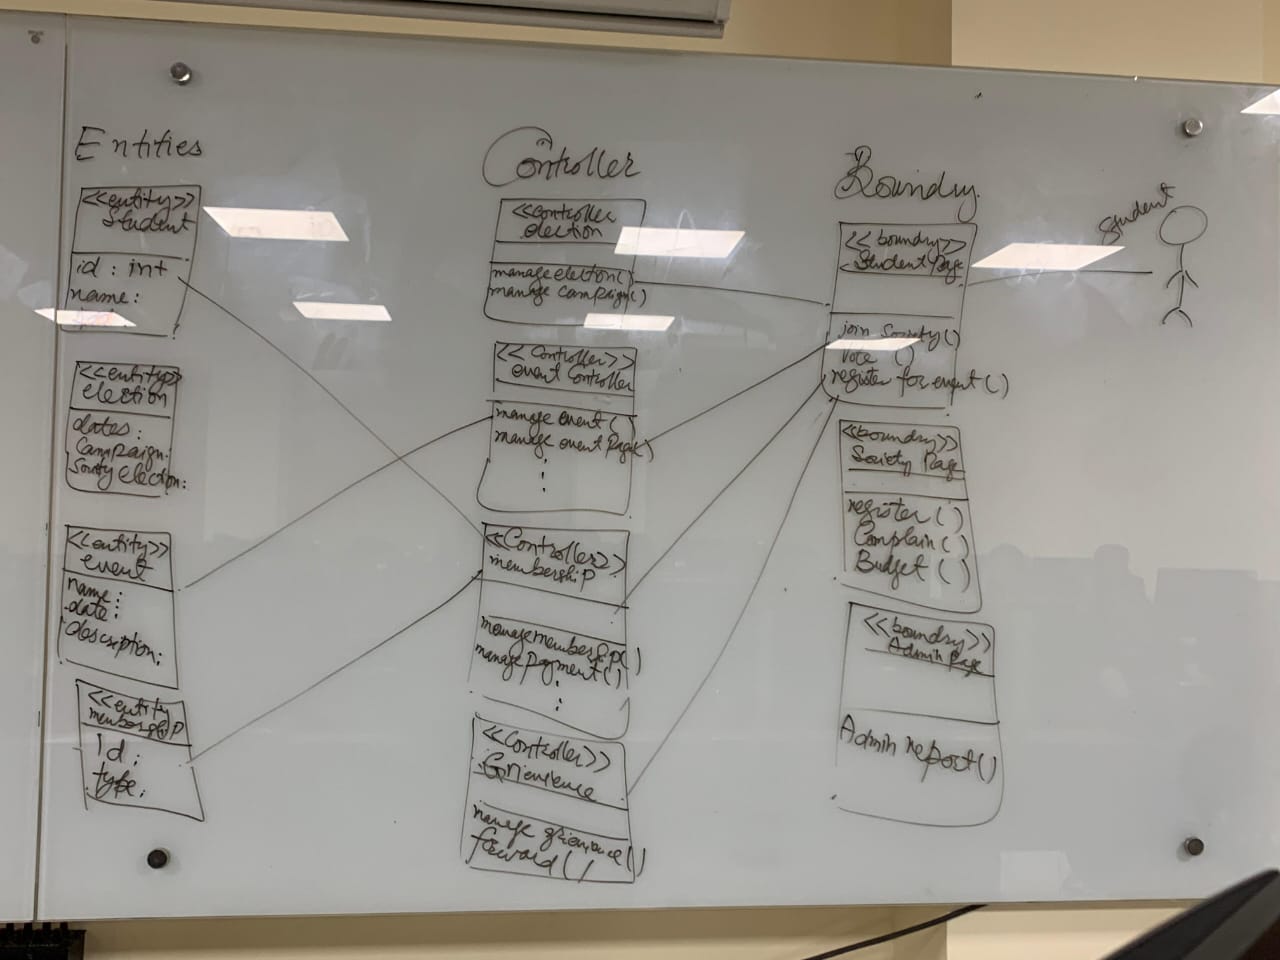 Entities
<<entity>>
Student
id : int
name :
<<entity>>
election
dates :
Campaign :
Society election :
<<entity>>
event
name :
date :
description :
<<entity
membership
id :
type :
Controller
<<controller
election
manage election()
manage campaign()
<<Controller>>
event Controller
manage event ( )
manage event Page( )
:
<<Controller>>
membership
manage membership( )
manage payment( )
:
<<Controller>>
Grievence
manage grievance( )
forward ( )
Boundry
<<boundry>>
Student Page
join Society ( )
Vote ( )
register for event ( )
<<boundry>>
Society Page
register ( )
Complain ( )
Budget ( )
<<boundry>>
Admin Page
Admin report ( )
Student